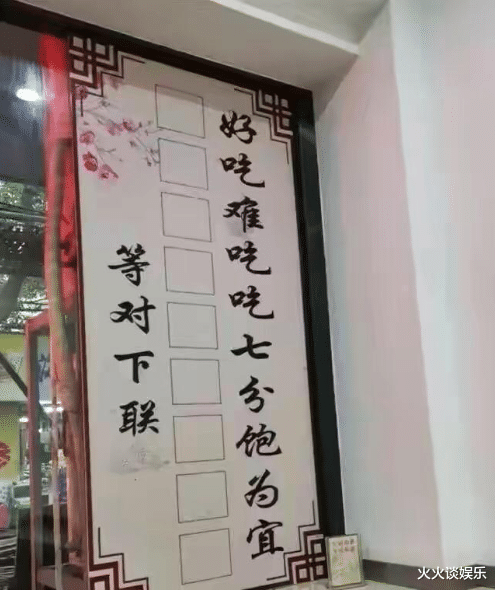 好吃难吃吃七分饱为宜
等对下联
火火谈娱乐